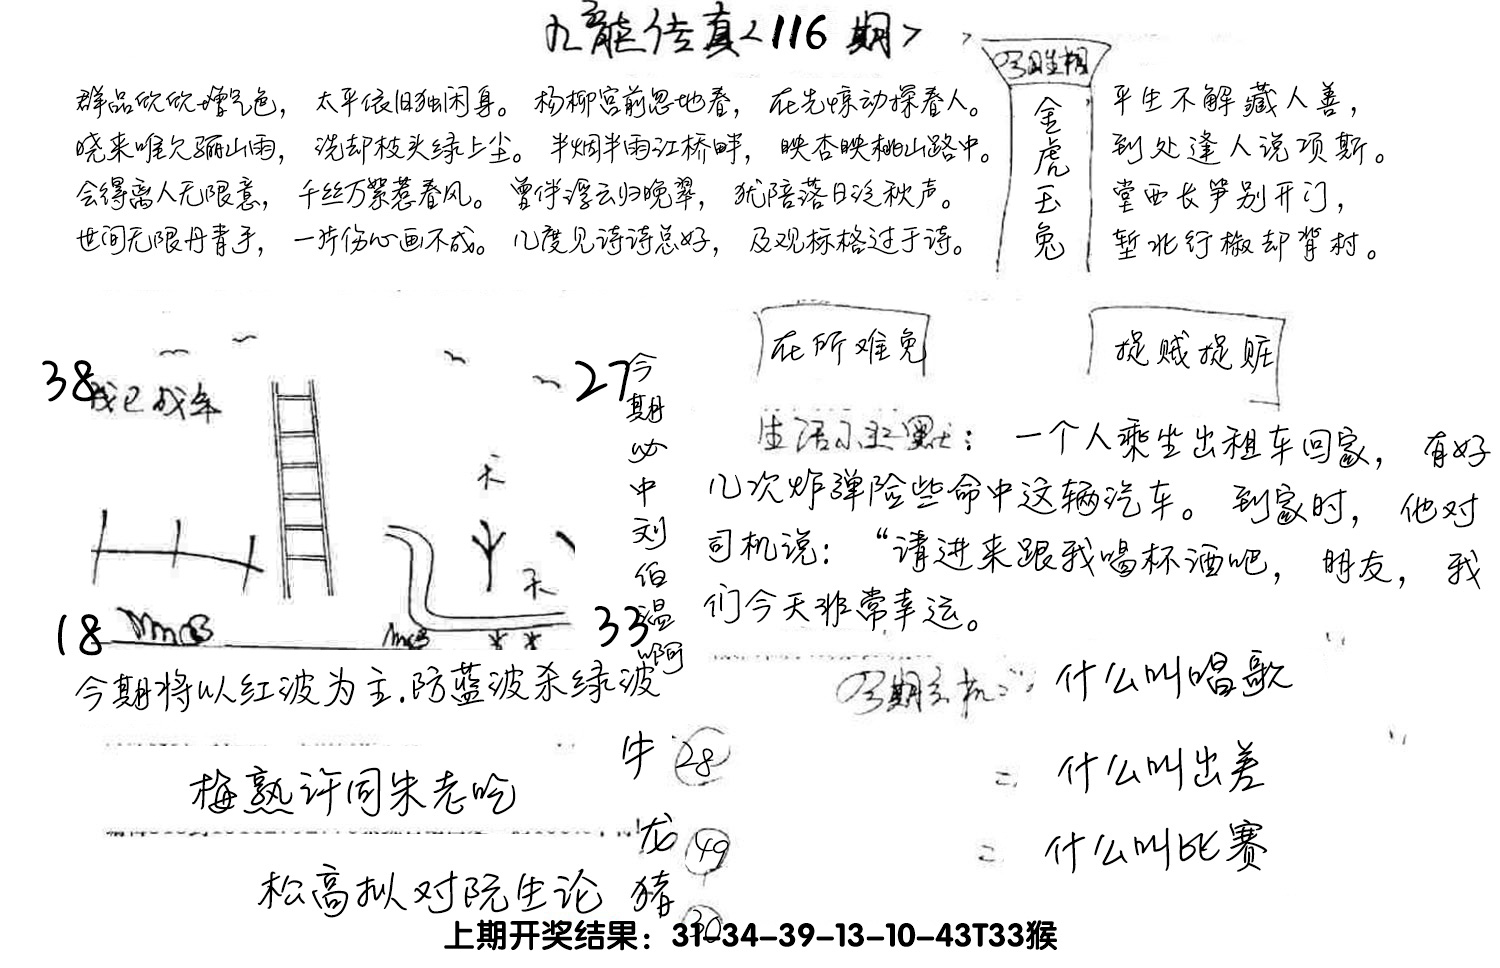 九龙传真<116期>
今期生相
金虎玉兔
群品欣欣增气色，太平依旧独闲身。杨柳宫前忽地春，在先惊动探春人。
晓来唯欠骊山雨，洗却枝头绿上尘。半烟半雨江桥畔，映杏映桃山路中。
会得离人无限意，千丝万絮惹春风。曾伴浮云归晚翠，犹陪落日泛秋声。
世间无限丹青手，一片伤心画不成。几度见诗诗总好，及观标格过于诗。
平生不解藏人善，
到处逢人说项斯。
堂西长笋别开门，
堑北行椒却背村。
38
27
18
33
天
天
今期必中刘伯温啊
今期将以红波为主.防蓝波杀绿波
在所难免
捉贼捉赃
生活小幽默：一个人乘坐出租车回家，有好
几次炸弹险些命中这辆汽车。到家时，他对
司机说：“请进来跟我喝杯酒吧，朋友，我
们今天非常幸运。
今期玄机：什么叫唱歌
= 什么叫出差
= 什么叫比赛
梅熟许同朱老吃
松高拟对阮生论
牛 28
龙 49
猪 30
上期开奖结果：31-34-39-13-10-43T33猴